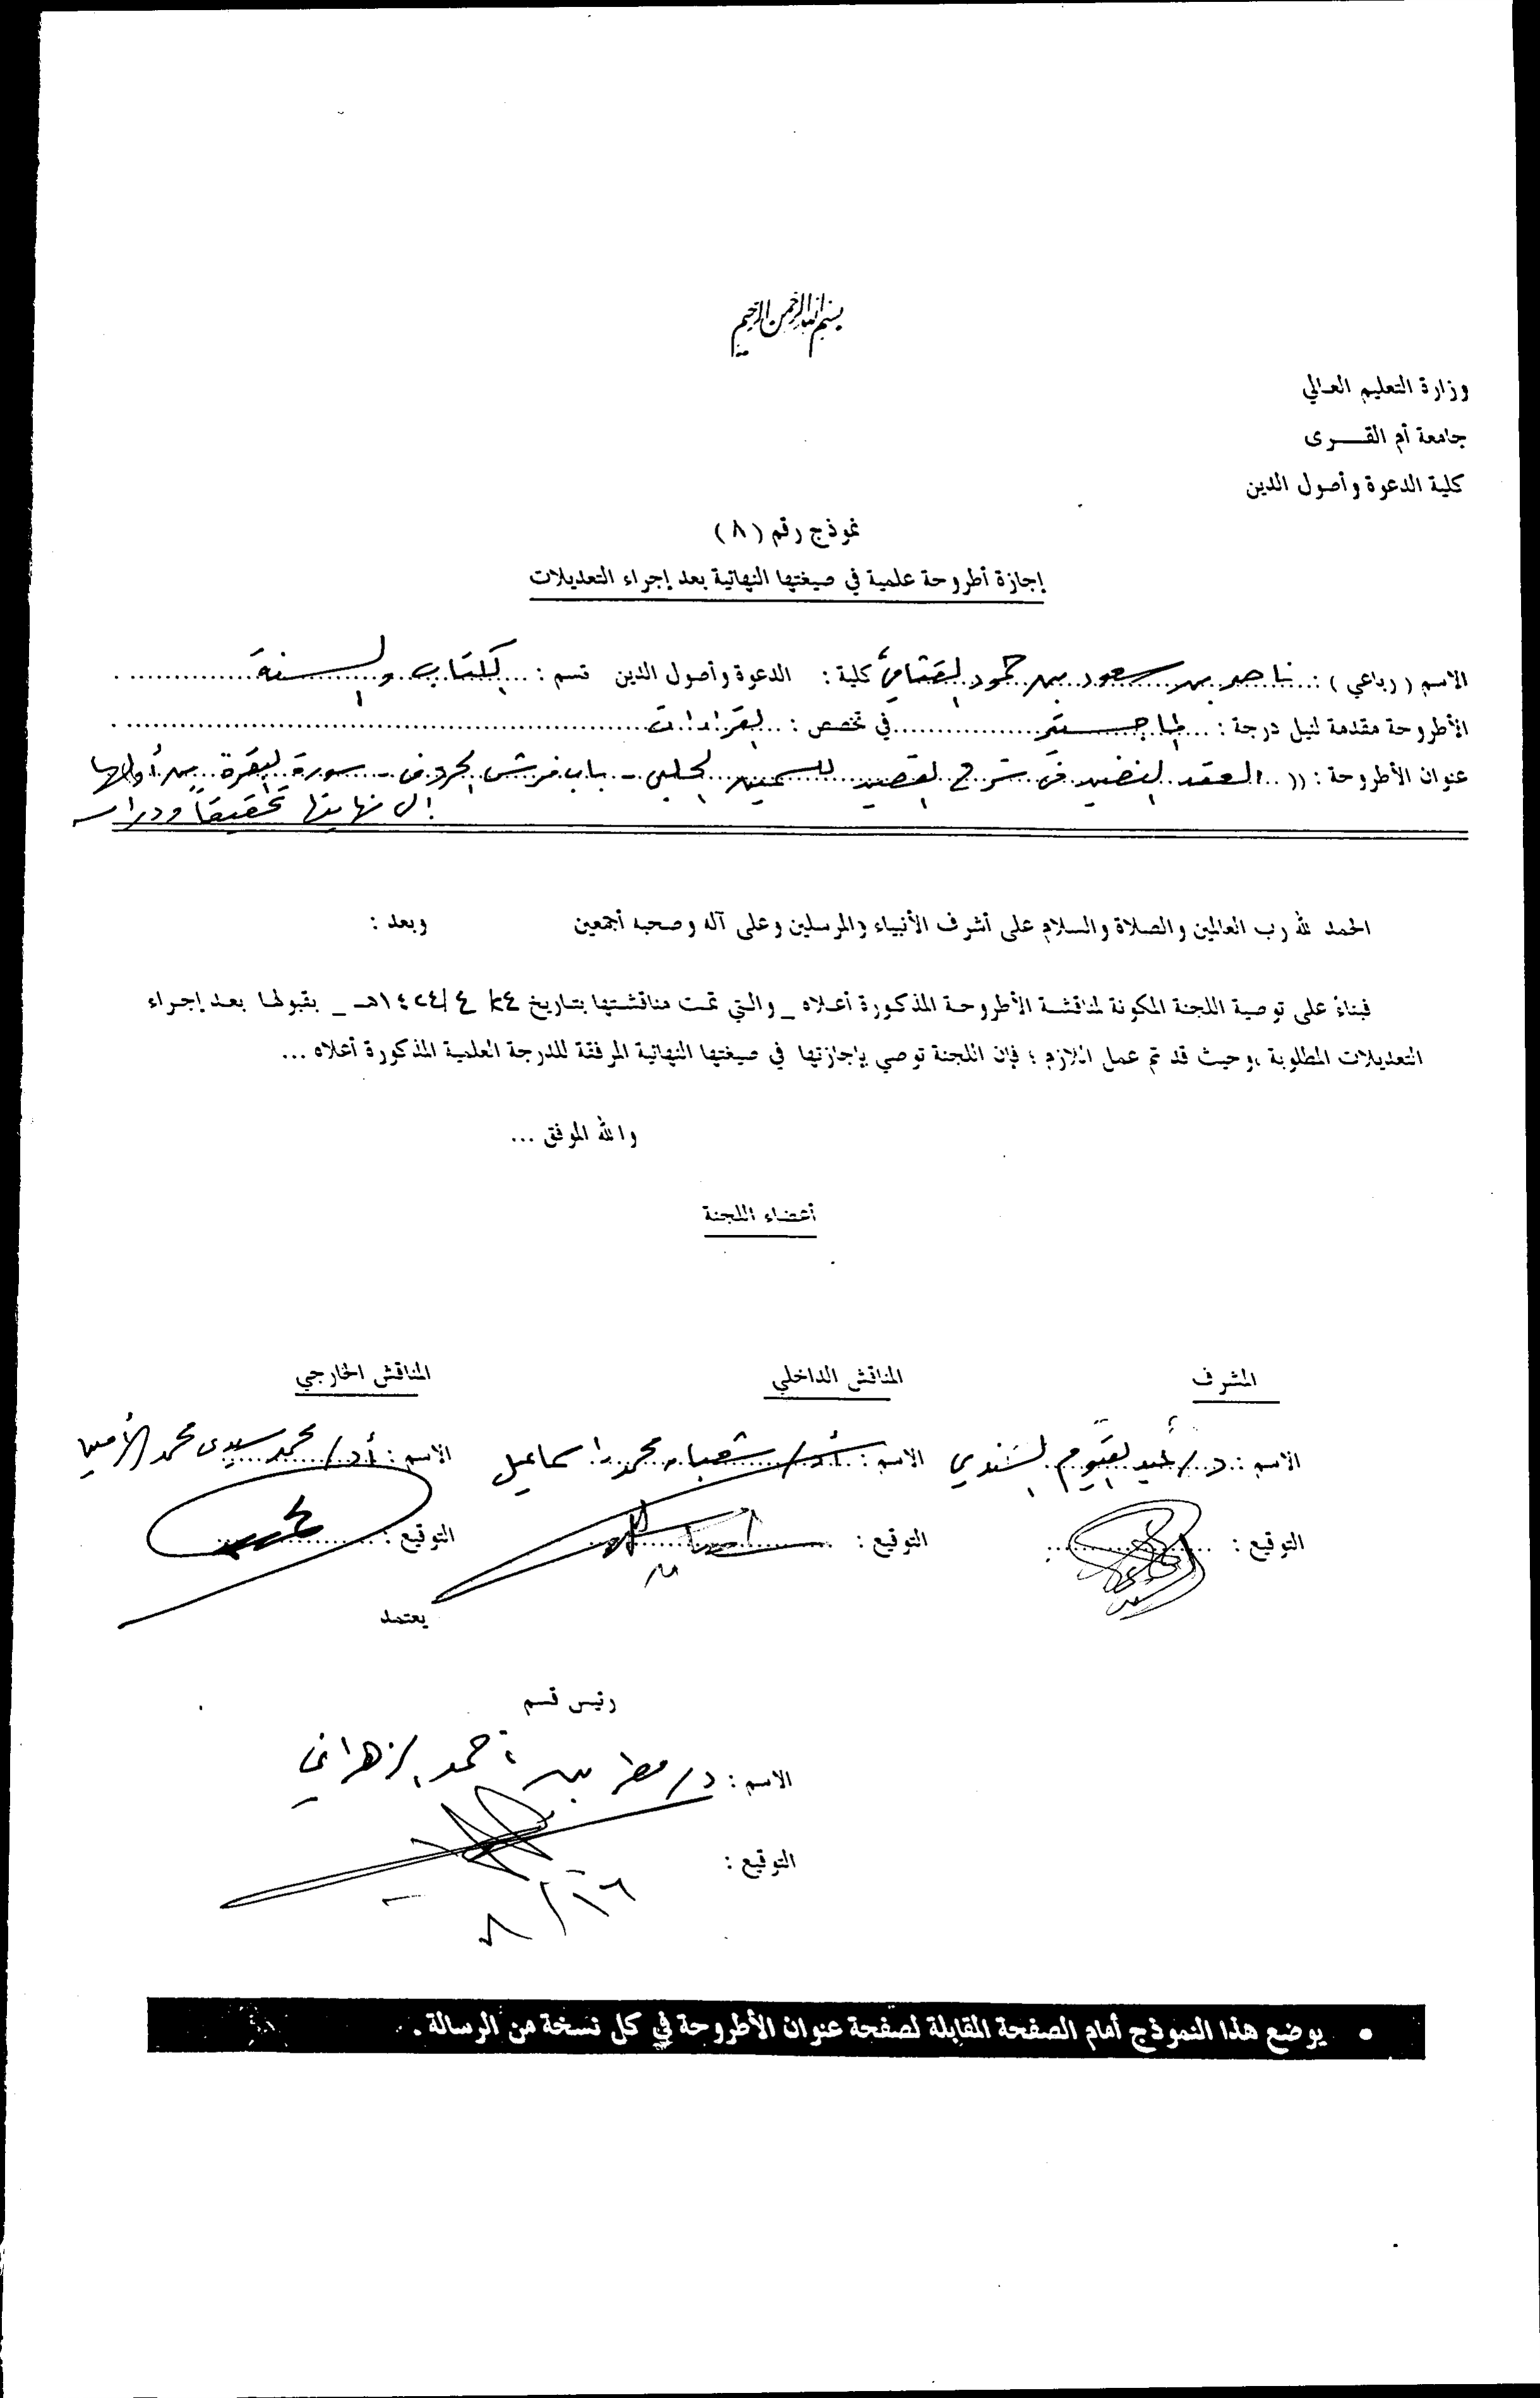 بسم الله الرحمن الرحيم
وزارة التعليم العالي
جامعة أم القــــرى
كلية الدعوة وأصول الدين
نموذج رقم (٨)
إجازة أطروحة علمية في صيغتها النهائية بعد إجراء التعديلات
الاسم (رباعي) : ناصر بن سعود بن حمود القثامي كلية : الدعوة وأصول الدين قسم : الكتاب والسنة
الأطروحة مقدمة لنيل درجة : الماجستير في تخصص : القراءات
عنوان الأطروحة : (( العقد النضيد في شرح القصيد للسمين الحلبي - باب فرش الحروف - سورة البقرة من أولها
إلى نهايتها تحقيقاً ودراسة
الحمد لله رب العالمين والصلاة والسلام على أشرف الأنبياء والمرسلين وعلى آله وصحبه أجمعين وبعد :
فبناءً على توصية اللجنة المكونة لمناقشة الأطروحة المذكورة أعلاه _ والتي تمت مناقشتها بتاريخ ٢٤/ ٤ /١٤٢٤هـ _ بقبولها بعد إجراء
التعديلات المطلوبة ،وحيث قد تم عمل اللازم ؛ فإن اللجنة توصي بإجازتها في صيغتها النهائية المرفقة للدرجة العلمية المذكورة أعلاه ...
والله الموفق ...
أعضاء اللجنة
المشرف المناقش الداخلي المناقش الخارجي
الاسم : د/ عبد القيوم السندي الاسم : أ.د/ شعبان محمد إسماعيل الاسم : أ.د/ محمد سيدي محمد الأمين
التوقيع : التوقيع : التوقيع :
يعتمد
رئيس قسم
الاسم : د/ مطر بن أحمد الزهراني
التوقيع :
٨/١٦
• يوضع هذا النموذج أمام الصفحة المقابلة لصفحة عنوان الأطروحة في كل نسخة من الرسالة .